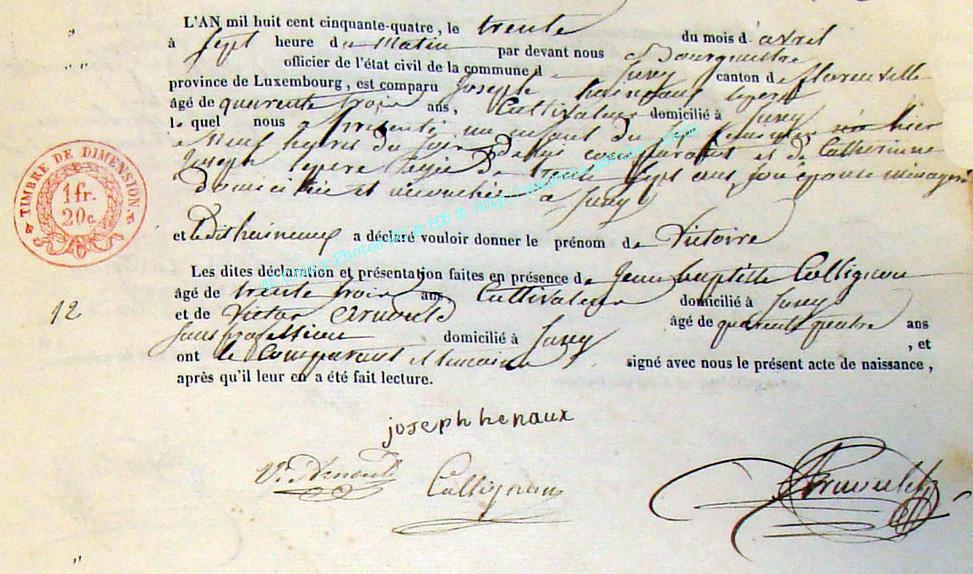 L'AN mil huit cent cinquante-quatre, le trente du mois d'avril
à sept heure du matin par devant nous Bourgmestre
officier de l'état civil de la commune de Juney canton de florenville
province de Luxembourg, est comparu Joseph hainaux
âgé de quarente trois ans, Cultivateur domicilié à Juney
le quel nous a presenté un enfant du sexe feminin né hier
a Neuf heures du soir de lui comparant et de Catherinne
Joseph agée de trente sept ans son epouse menagere
domiciliée à Juney
et ledit a déclaré vouloir donner le prénom de Victoire
Les dites déclaration et présentation faites en présence de Jean baptiste Collignon
âgé de trente trois ans Cultivateur domicilié à Juney
12
et de Victor Arnould âgé de quarente quatre ans
sans profession domicilié à Juney , et
ont le Comparant et temoins signé avec nous le présent acte de naissance,
après qu'il leur en a été fait lecture.
TIMBRE DE DIMENSION
1 fr.
20 c.
joseph henaux
V. Arnould Collignon